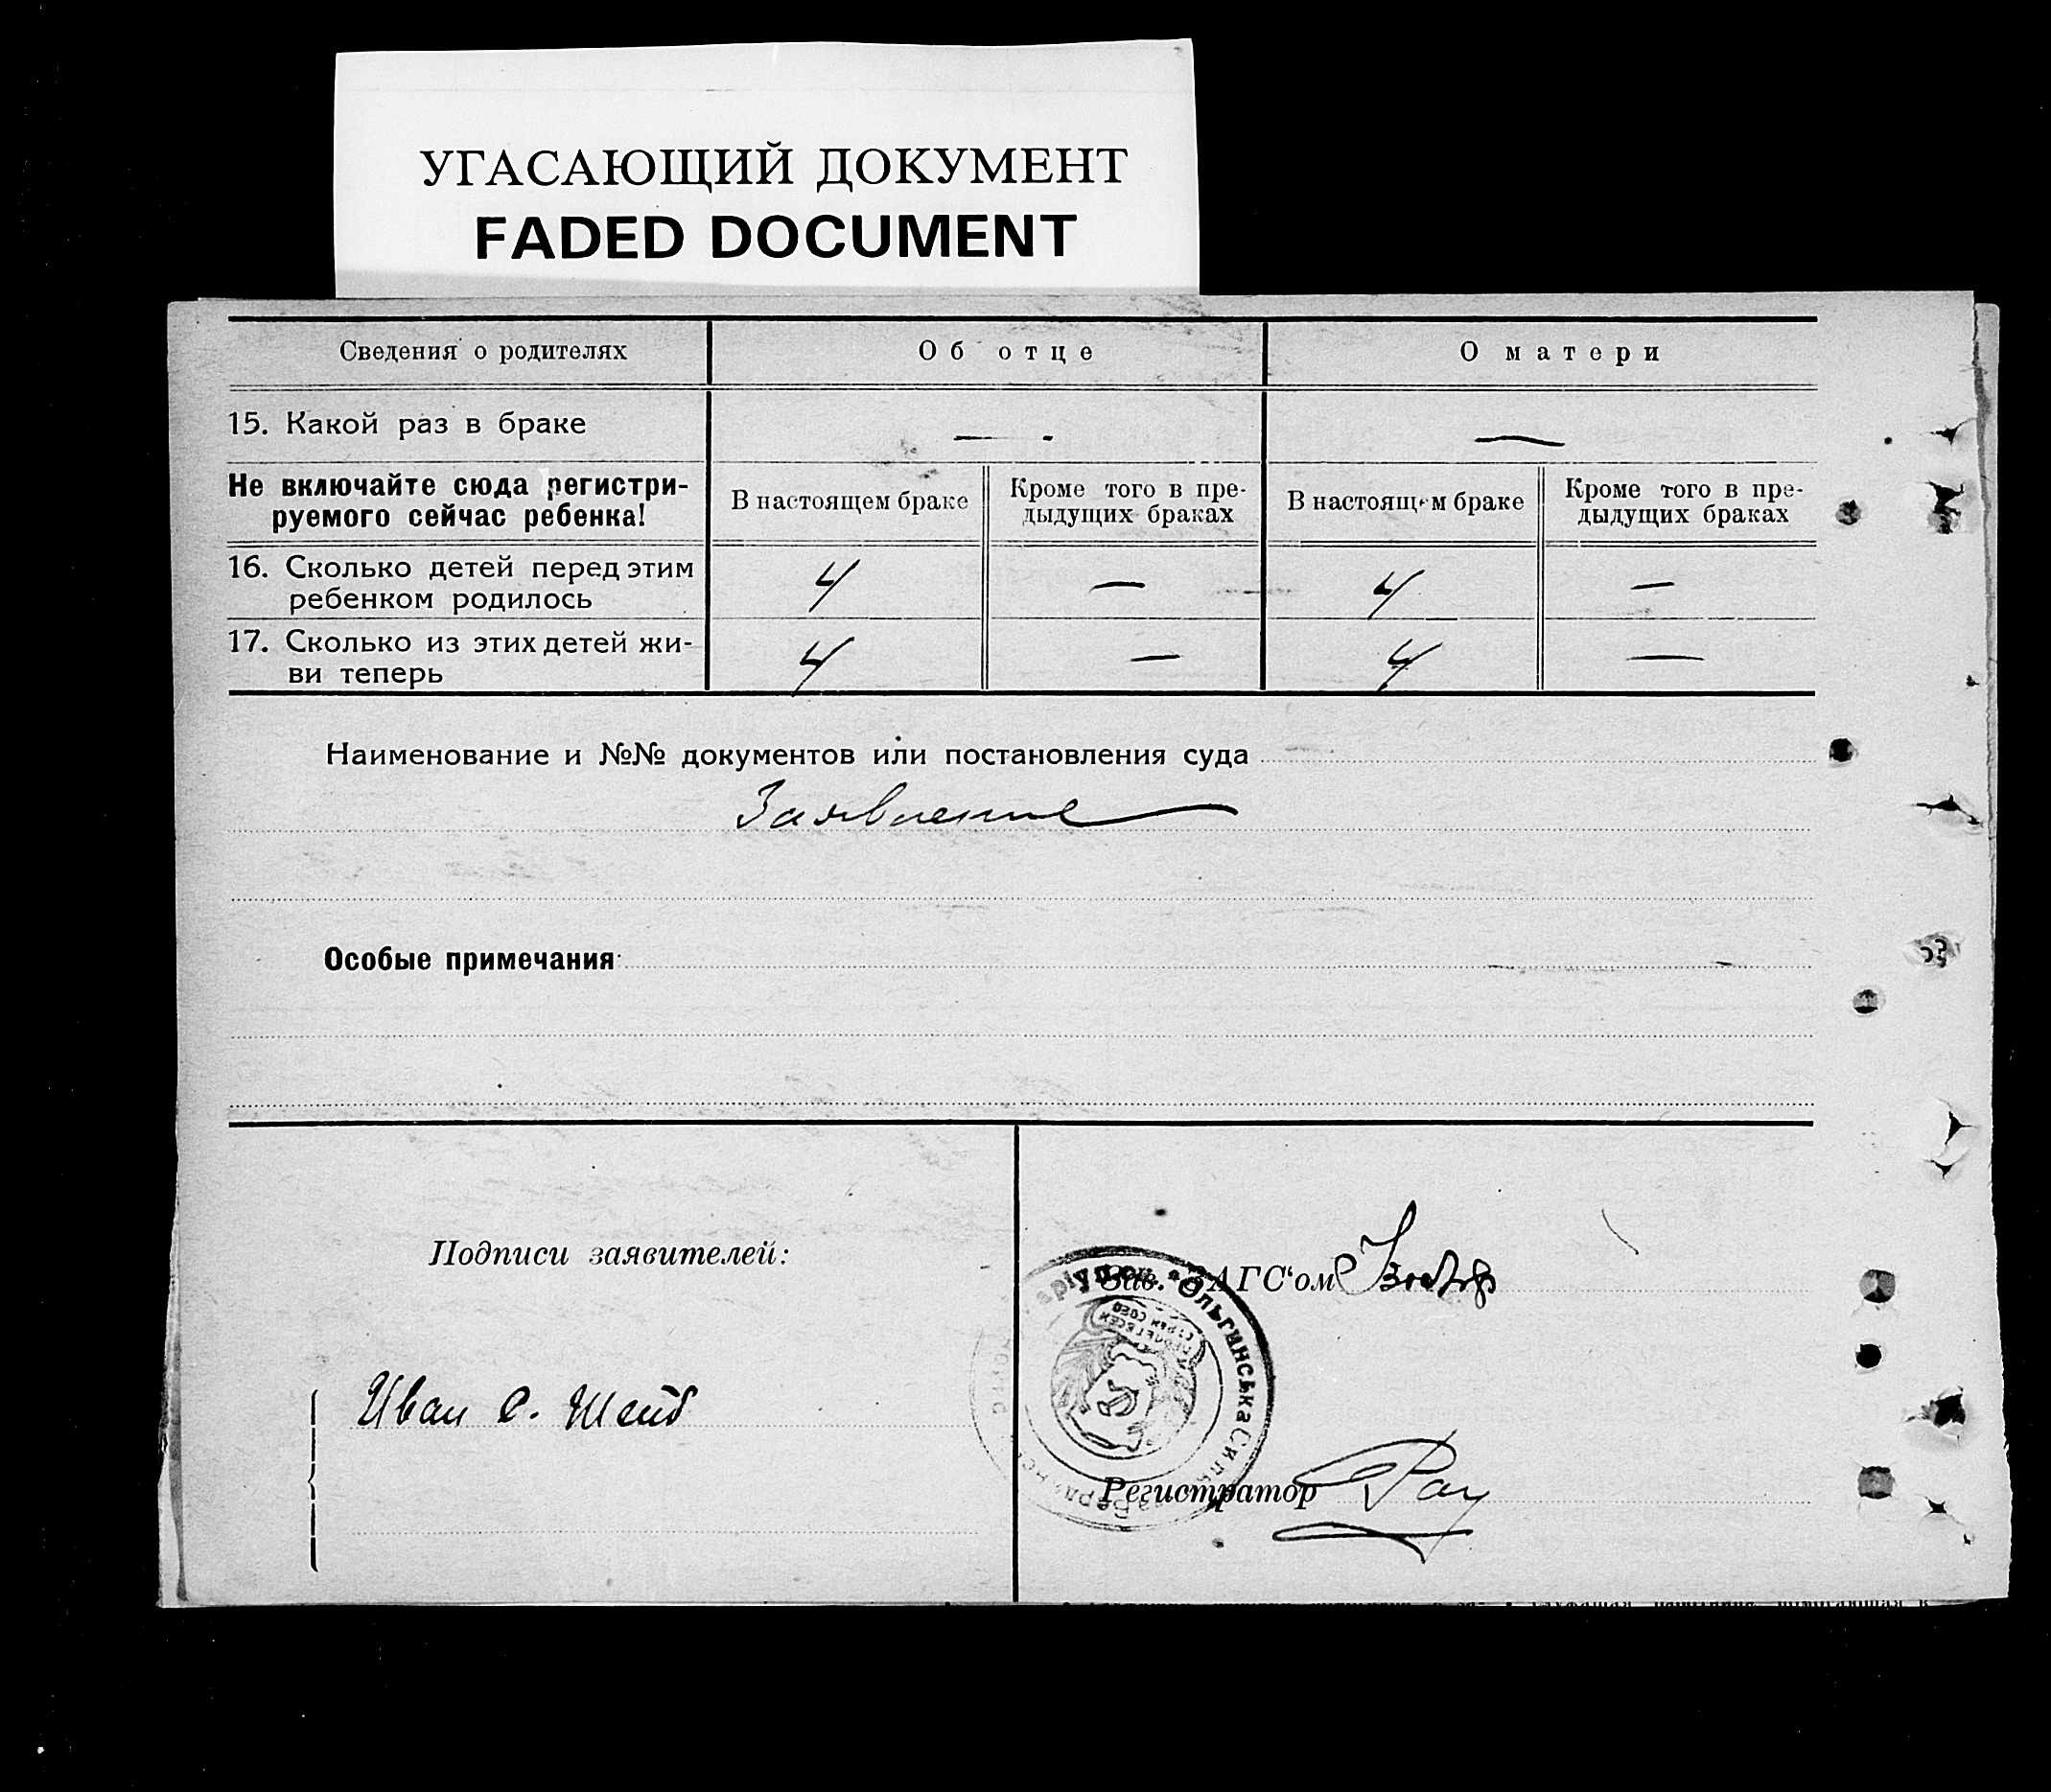 УГАСАЮЩИЙ ДОКУМЕНТ
FADED DOCUMENT
Сведения о родителях
Об отце
О матери
15. Какой раз в браке
— -
—
Не включайте сюда регистри-
руемого сейчас ребенка!
В настоящем браке
Кроме того в пре-
дыдущих браках
В настоящем браке
Кроме того в пре-
дыдущих браках
16. Сколько детей перед этим
ребенком родилось
4
—
4
—
17. Сколько из этих детей жи-
ви теперь
4
—
4
—
Наименование и №№ документов или постановления суда
Заявление
Особые примечания
Подписи заявителей:
Зав. ЗАГС'ом
Ольгинська
Иван С.
Регистратор